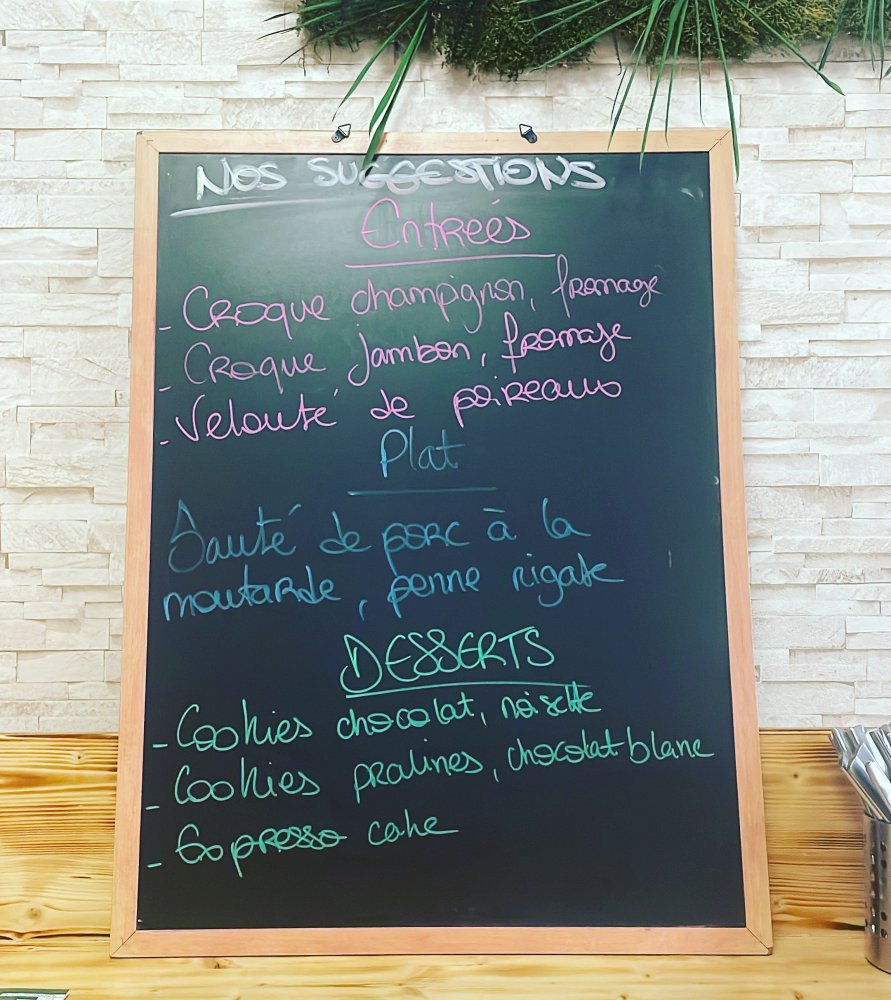 NOS SUGGESTIONS
Entrées
- Croque champignon, fromage
- Croque jambon, fromage
- Velouté de poireaux
Plat
Sauté de porc à la
moutarde, penne rigate
DESSERTS
- Cookies chocolat, noisette
- Cookies pralines, chocolat blanc
- Expresso cake